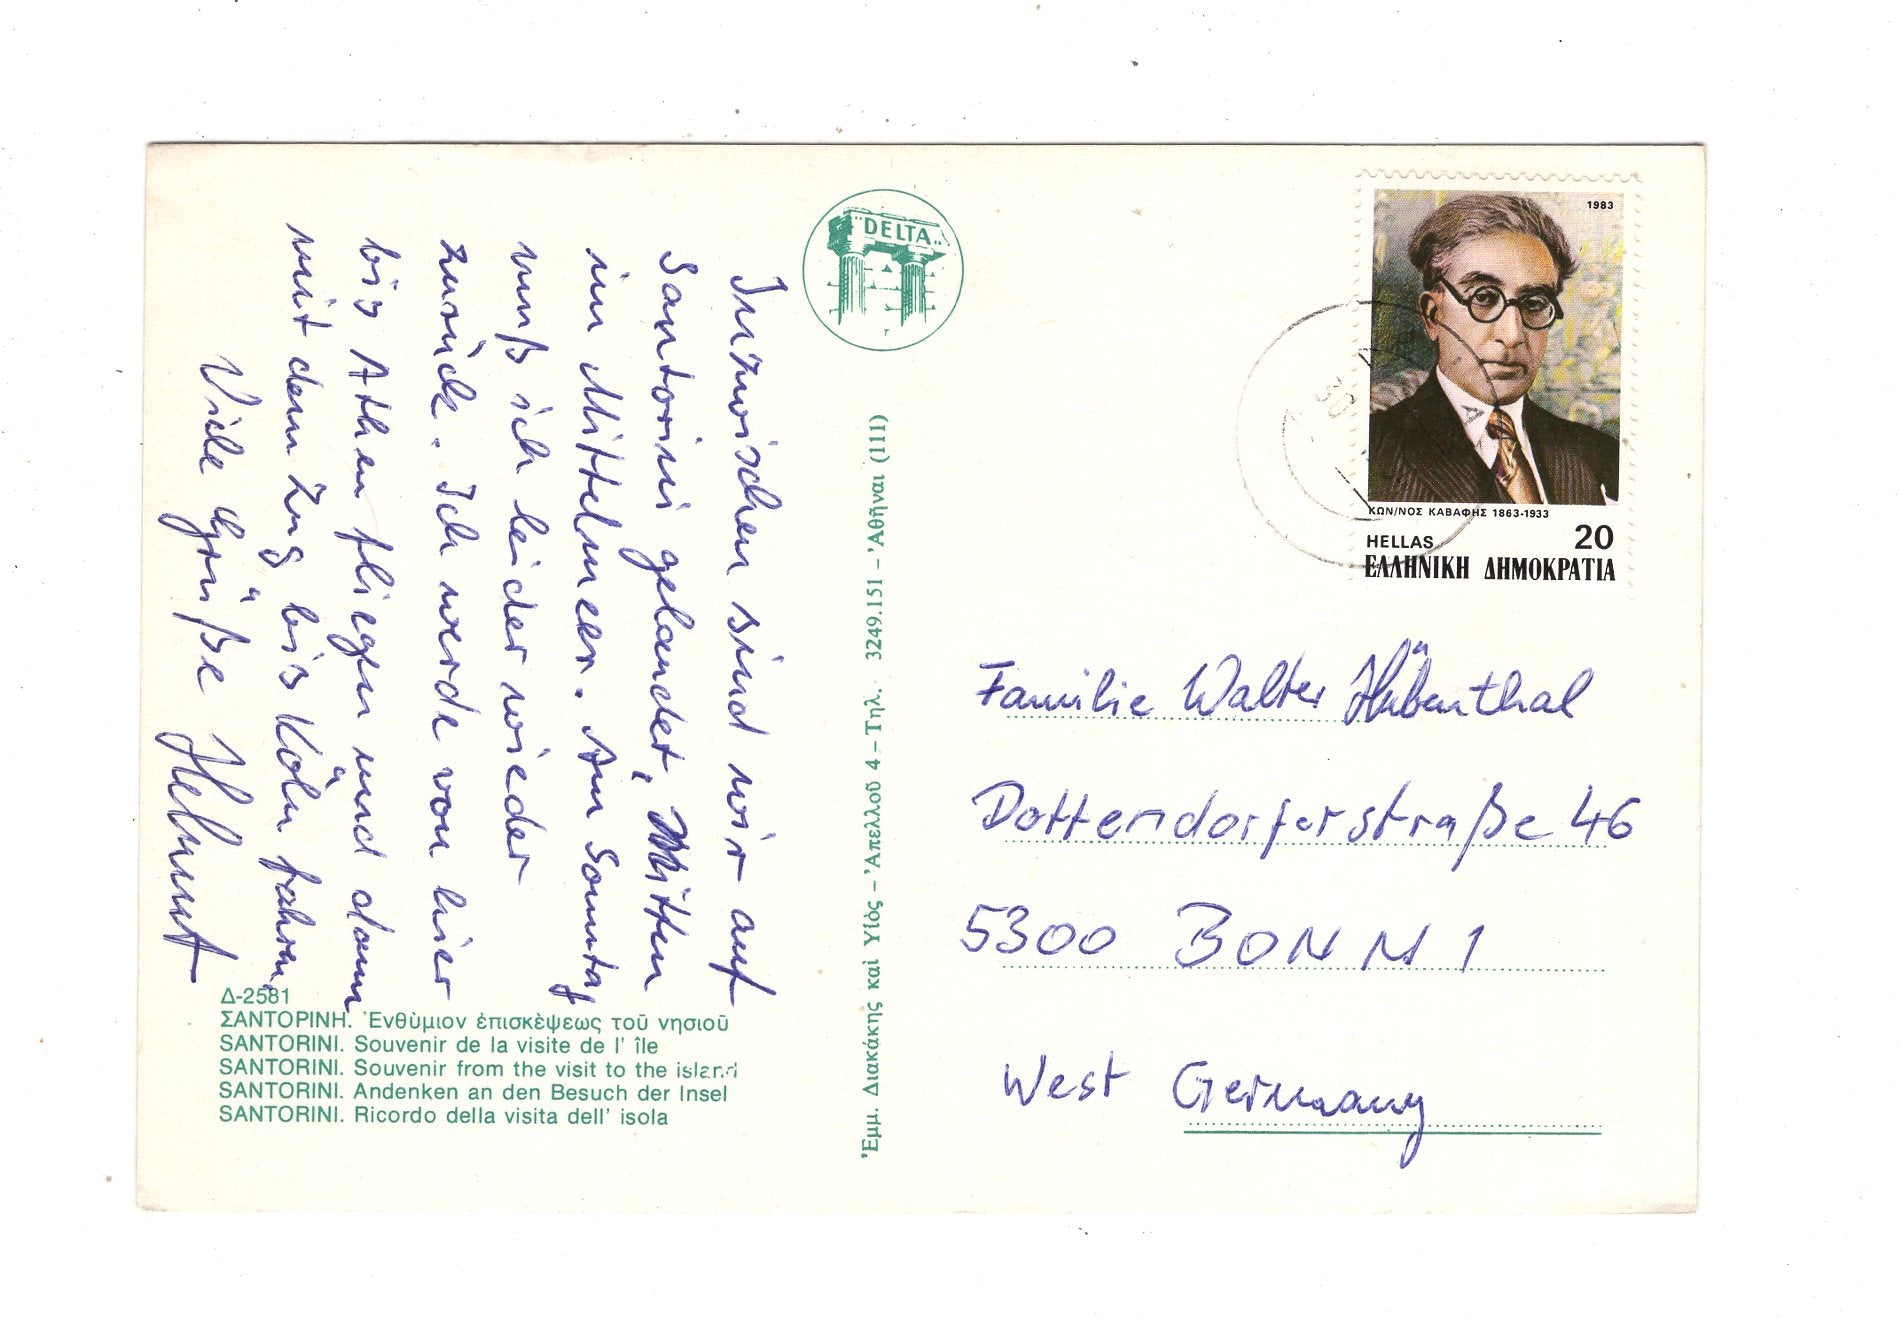 Inzwischen sind wir auf
Santorini gelandet, Mitten
im Mittelmeer. Am Sonntag
muß ich leider wieder
zurück. Ich werde von hier
bis Athen fliegen und dann
mit dem Zug bis Köln fahren.
Viele Grüße Helmut
"DELTA"
Δ-2581
ΣΑΝΤΟΡΙΝΗ. Ἐνθὺμιον ἐπισκὲψεως τοῦ νησιοῦ
SANTORINI. Souvenir de la visite de l' île
SANTORINI. Souvenir from the visit to the island
SANTORINI. Andenken an den Besuch der Insel
SANTORINI. Ricordo della visita dell' isola
Ἐμμ. Διακάκης καὶ Υἱὸς – Ἀπελλοῦ 4 – Τηλ. 3249.151 – Ἀθῆναι (111)
1983
ΚΩΝ/ΝΟΣ ΚΑΒΑΦΗΣ 1863-1933
HELLAS 20
ΕΛΛΗΝΙΚΗ ΔΗΜΟΚΡΑΤΙΑ
Familie Walter Hübenthal
Dottendorferstraße 46
5300 BONN 1
West Germany